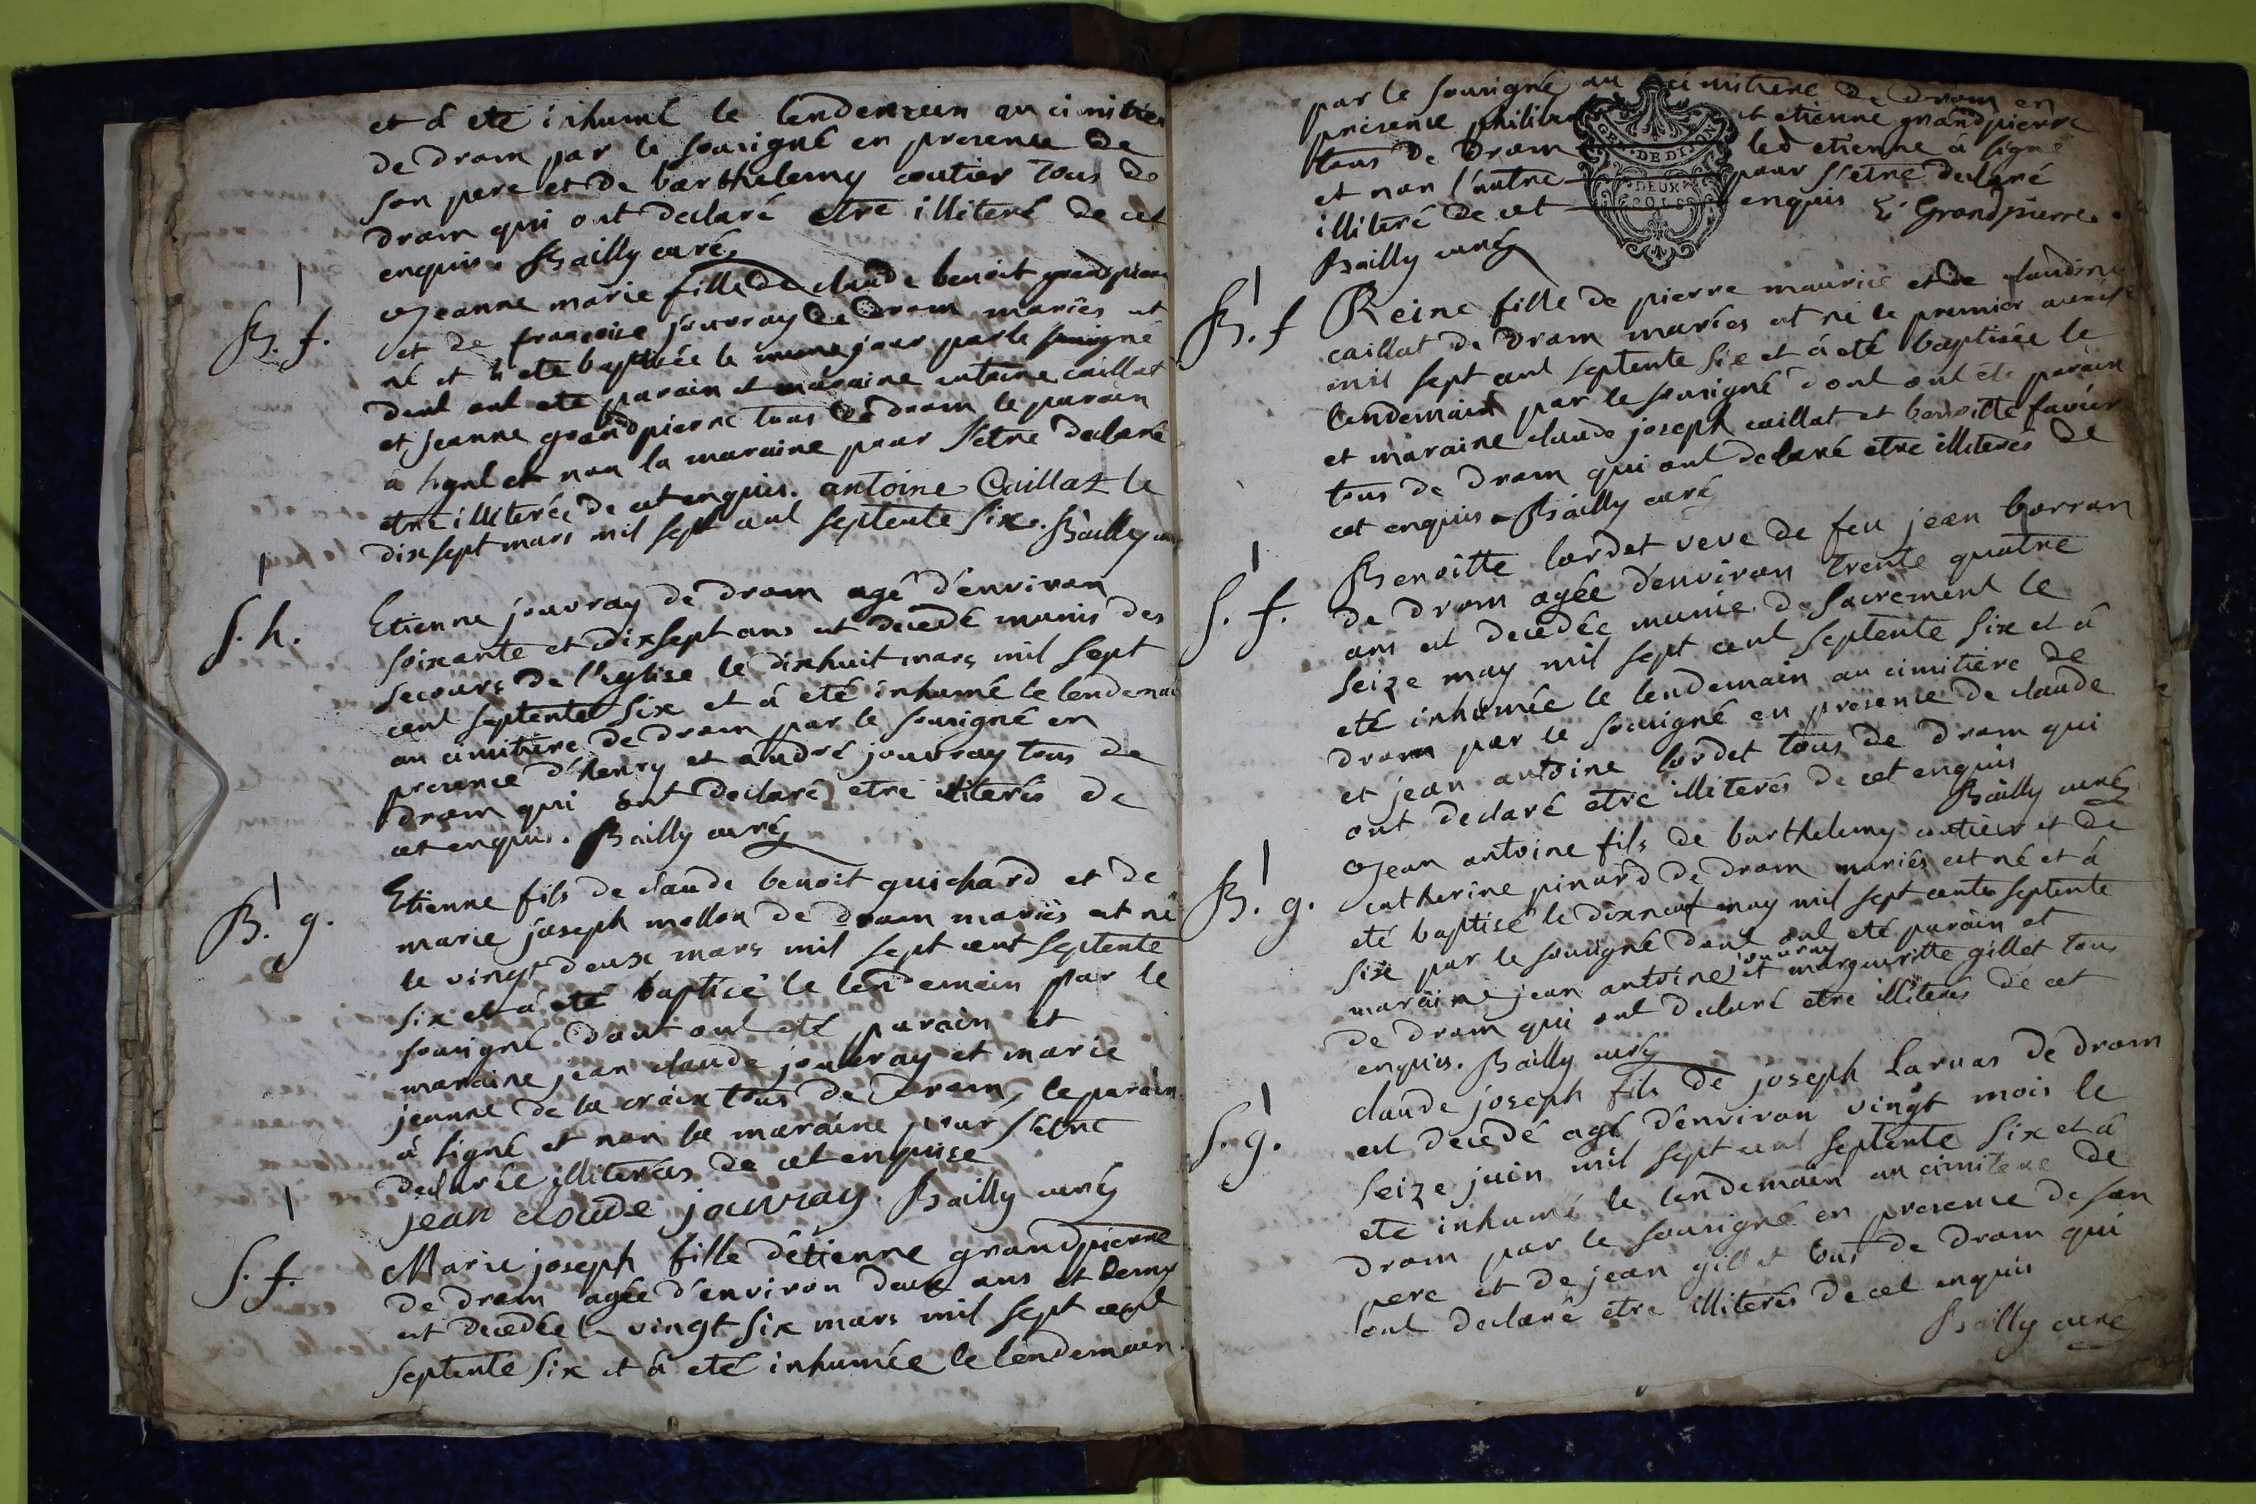 et à eté inhumé le lendemain au cimitiere
de drom par le sousigné en presence de
son pere et de barthelemy coutier tous de
drom qui ont declaré etre illiteré de cet
enquis. Bailly curé
B. f.
Jeanne marie fille de claude benoit grandpierre
et de françoise jouvray de drom mariés est
né et à eté baptisée le meme jour par le sousigné
dont ont eté parain et maraine antoine caillat
et jeanne grandpierre tous de drom le parain
à signé et non la maraine pour s'etre declaré
etre illiterée de cet enquis. antoine Caillat le
dix sept mars mil sept cent septente six. Bailly curé
S. h.
Etienne jouvray de drom agé d'environ
soixante et dix sept ans est decedé munis des
secours de l'eglise le dix huit mars mil sept
cent septente six et à eté inhumé le lendemain
au cimitiere de drom par le sousigné en
presence d'henry et andré jouvray tous de
drom qui ont declaré etre illiterés de
cet enquis. Bailly curé
B. g.
Etienne fils de claude benoit guichard et de
marie joseph mollon de drom mariés est né
le vingt deux mars mil sept cent septente
six et à eté baptisé le lendemain par le
sousigné dont ont eté parain et
maraine jean claude jouvray et marie
jeanne de la croix tous de drom, le parain
à signé et non la maraine pour s'etre
declarée illiterées de cet enquise
jean cloude jouvray. Bailly curé
S. f.
Marie joseph fille d'etienne grandpierre
de drom agée d'environ deux ans et demy
est decedée le vingt six mars mil sept cent
septente six et à eté inhumée le lendemain
par le sousigné au cimitiere de drom en
presence philibert et etienne grandpierre
tous de drom led etienne à signé
et non l'autre pour s'etre declaré
illiteré de cet enquis E Grandpierre.
Bailly curé
GEN. DE DIJON
DEUX
SOLS
B. f
Reine fille de pierre maurice et de claudine
caillat de drom mariés est né le premier avril
mil sept cent septente six et à eté baptisée le
lendemain par le sousigné dont ont eté parain
et maraine claude joseph caillat et benoitte favier
tous de drom qui ont declaré etre illiterés de
cet enquis. Bailly curé
S. f.
Benoitte lordet veve de feu jean borron
de drom agée d'environ trente quatre
ans est decedée munie de sacrement le
seize may mil sept cent septente six et à
eté inhumée le lendemain au cimitiere de
drom par le sousigné en presence de claude
et jean antoine lordet tous de drom qui
ont declaré etre illiterés de cet enquis
Bailly curé
B. g.
Jean antoine fils de barthelemy coutier et de
catherine pinard de drom mariés est né et à
eté baptisé le dix neuf may mil sept cente septente
six par le sousigné dont ont eté parain et
maraine jean antoine jouvray et margueritte gillet tous
de drom qui ont declaré etre illiterés de cet
enquis. Bailly curé
S. g.
claude joseph fils de joseph Larvas de drom
est decedé agé d'environ vingt mois le
seize juin mil sept cent septente six et à
eté inhumé le lendemain au cimitere de
drom par le sousigné en presence de son
pere et de jean gillet tous de drom qui
ont declaré etre illiterés de cet enquis
Bailly curé